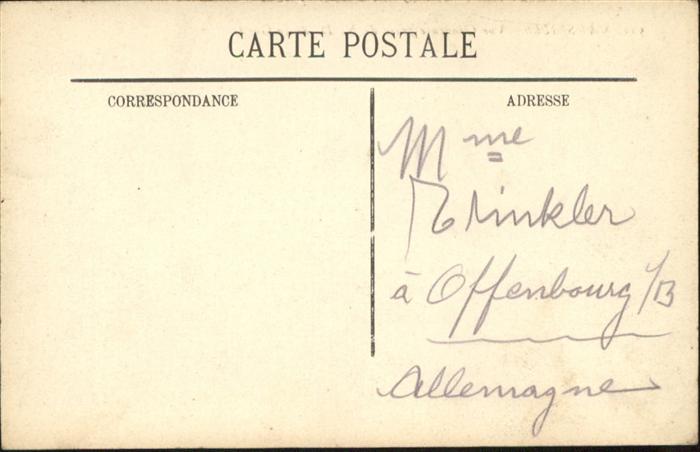 CARTE POSTALE
CORRESPONDANCE
ADRESSE
Mme
à Offenbourg /B
Allemagne